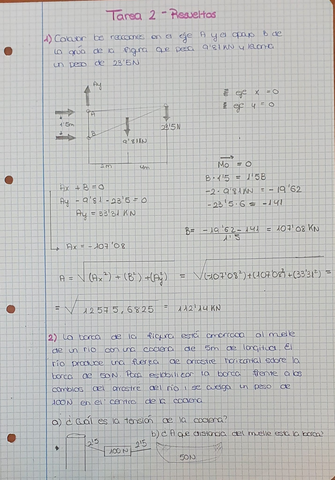 Tarea 2 - Resueltos
1) Calcular las reacciones en el eje A y el apoyo B de
la grúa de la figura que pesa 9'81 KN y levanta
un peso de 23'5N.
Ay
A
1'5m
B
9'81KN
23'5N
2m 4m
x = 0
y = 0
Ax + B = 0
Ay - 9'81 - 23'5 = 0
Ay = 33'31 KN
Ax = -107'08
Mo = 0
B·1'5 = 1'5B
-2·9'81KN = -19'62
-23'5·6 = -141
B = -19'62 - 141 / 1'5 = 107'08 KN
A = √(Ax²) + (B²) + (Ay²) = √(-107'08²)+(107'08²)+(33'31²) =
= √12575,6825 = 112'14 KN
2) La barca de la figura está amarrada al muelle
de un río con una cadena de 5m de longitud. El
río produce una fuerza de arrastre horizontal sobre la
barca de 50N. Para estabilizar la barca frente a los
cambios del arrastre del río, se cuelga un peso de
100N en el centro de la cadena.
a) ¿Cuál es la tensión de la cadena?
b) ¿A que distancia del muelle está la barca?
2'5 100N 2'5
50N